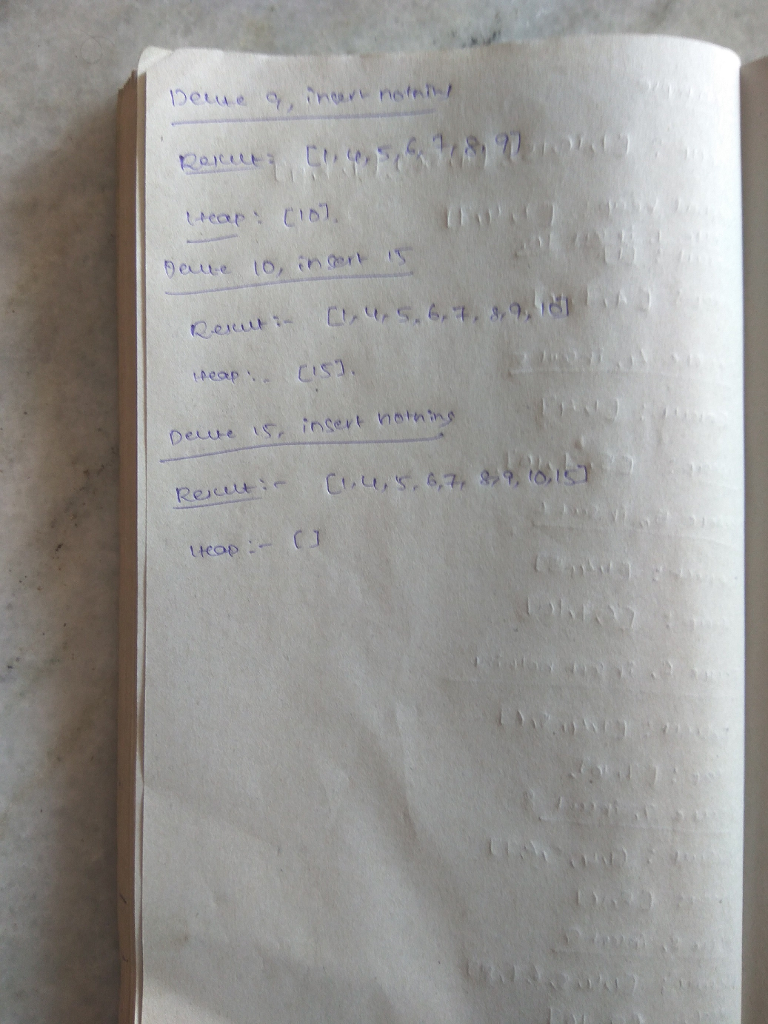 Delete 9, insert nothing
Result: [1, 4, 5, 6, 7, 8, 9]
Heap: [10].
Delete 10, insert 15
Result:- [1, 4, 5, 6, 7, 8, 9, 10]
Heap:- [15].
Delete 15, insert nothing
Result:- [1, 4, 5, 6, 7, 8, 9, 10, 15]
Heap:- []